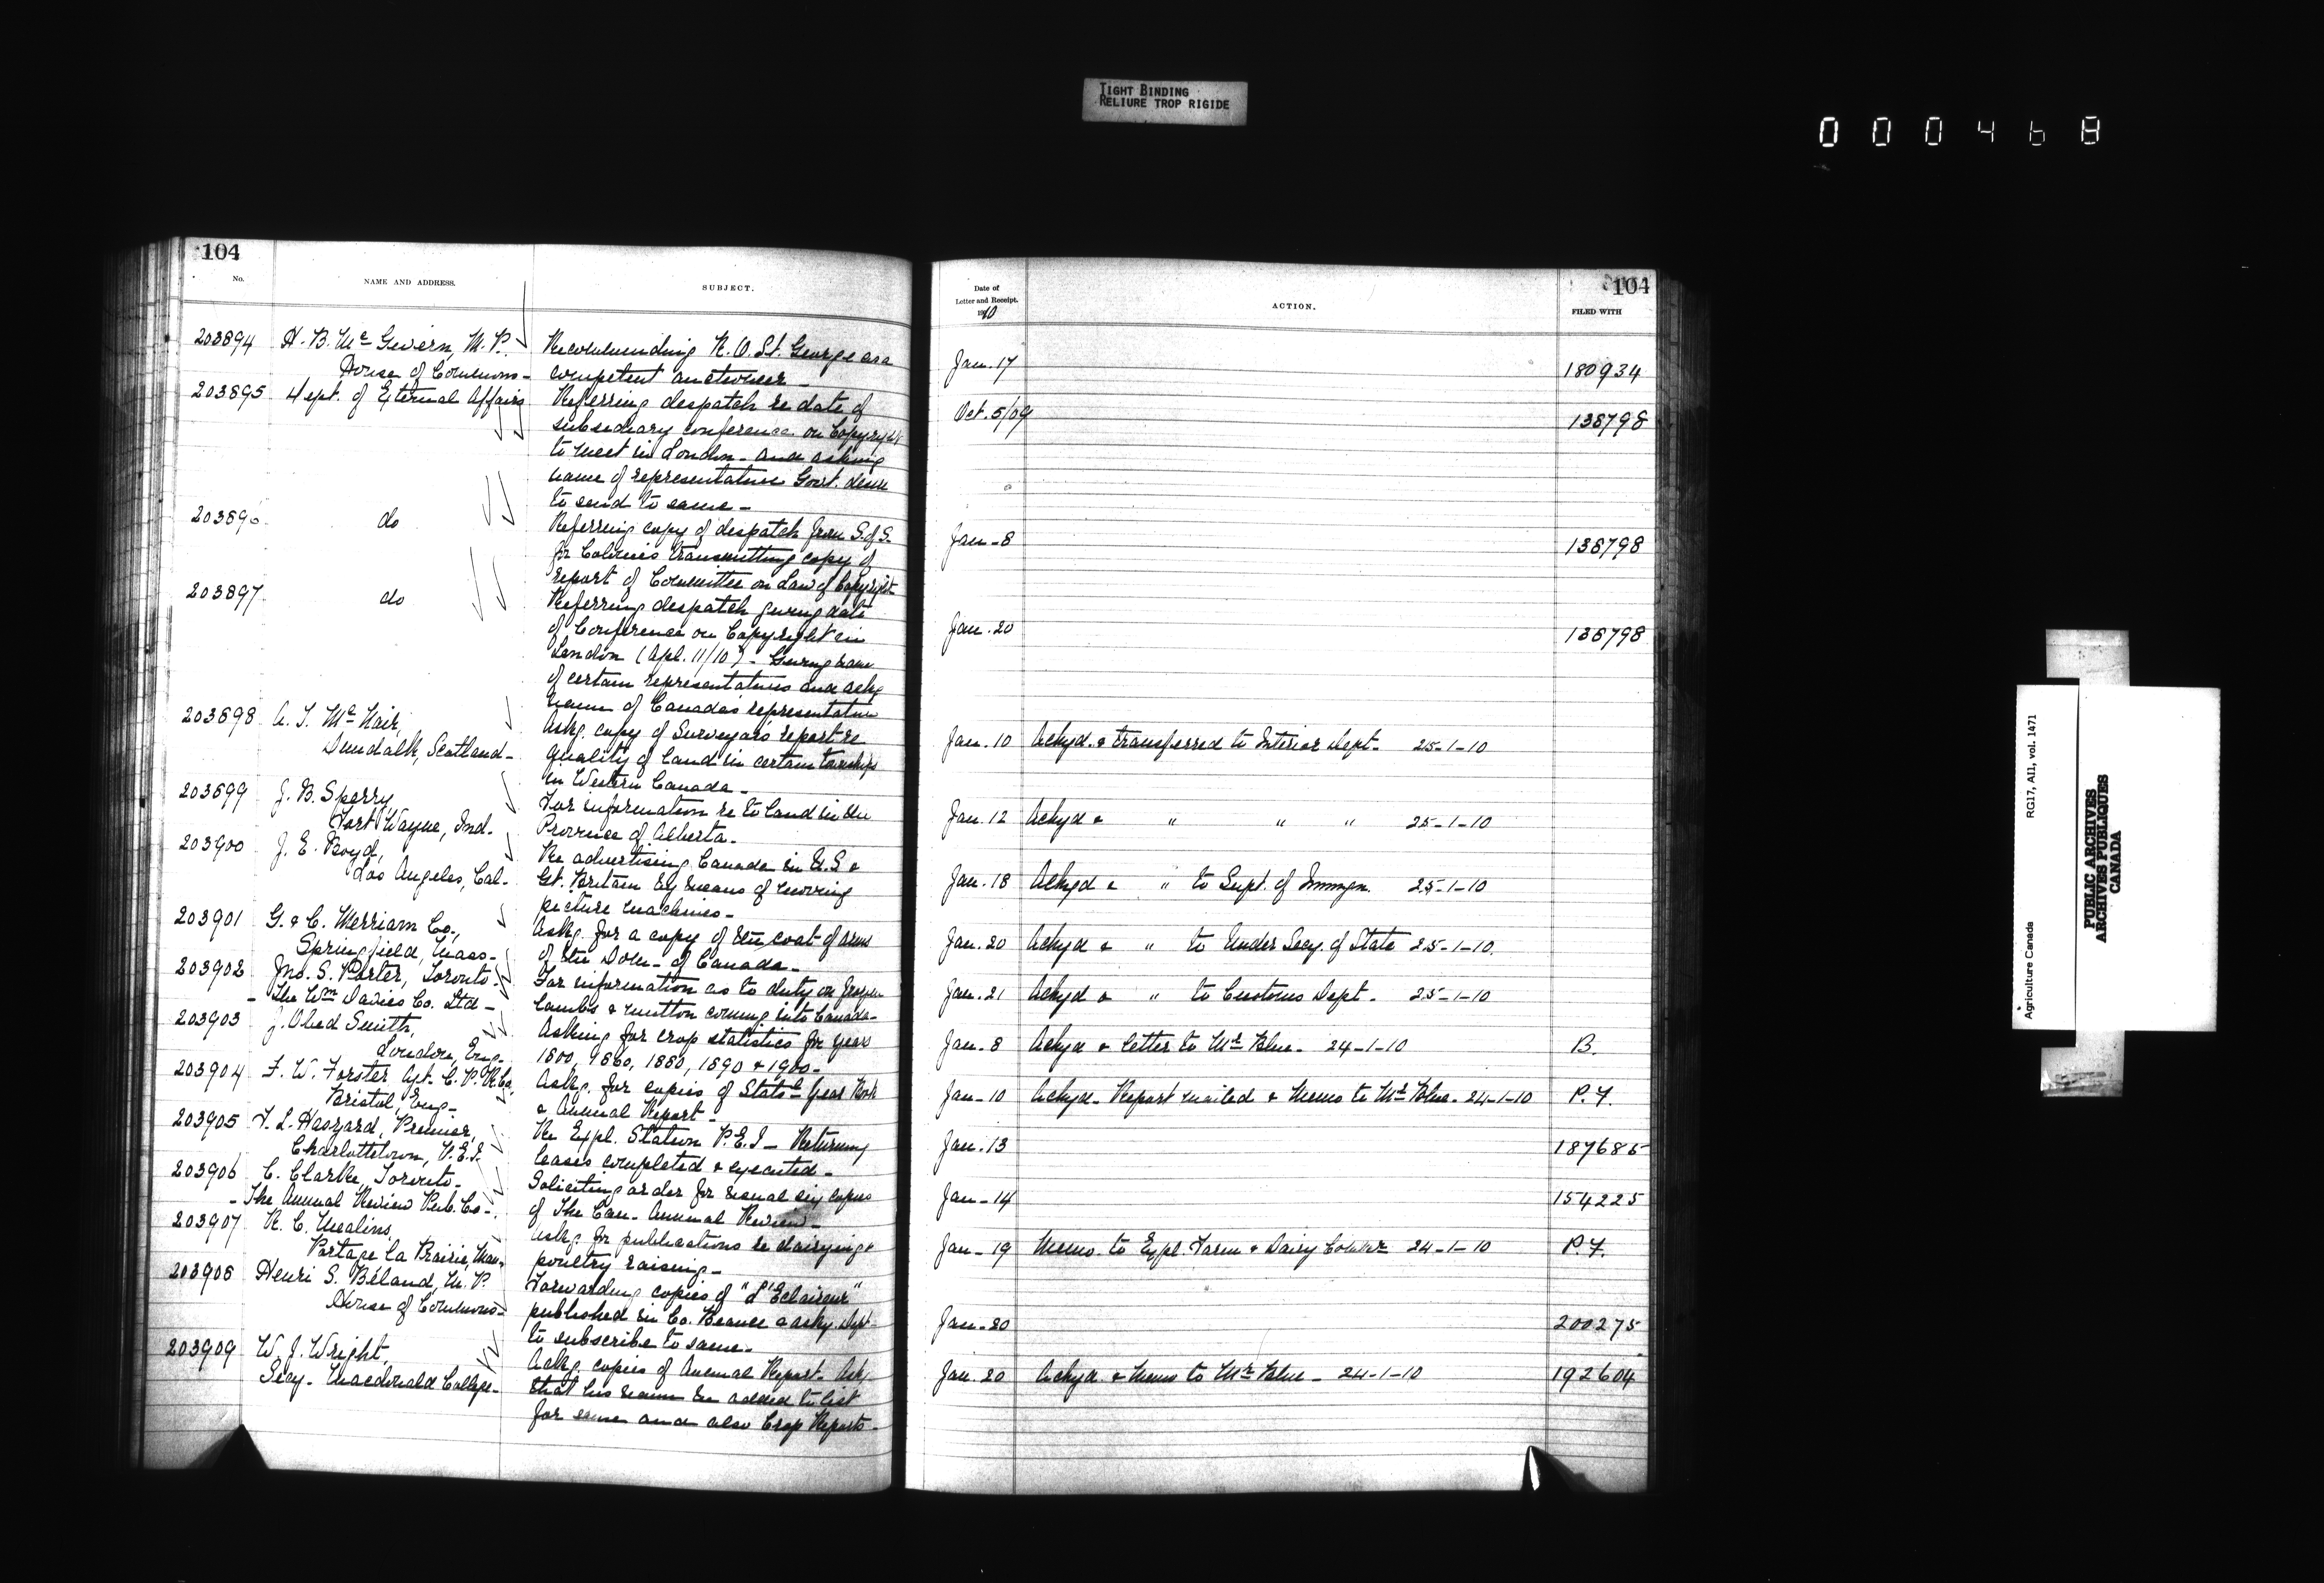 TIGHT BINDING
RELIURE TROP RIGIDE
000468
104
No.
NAME AND ADDRESS.
SUBJECT.
203894 H. B. Mc Givern, M. P. Recommending R. O. St. George as a
House of Commons - competent auctioneer -
203895 Dept. of External Affairs Referring despatch re date of
subsidiary conference on Copyright
to meet in London - and asking
name of representative Govt. desire
to send to same -
203896 do Referring copy of despatch from S. of S.
for Colonies transmitting copy of
report of Committee on Law of Copyright
203897 do Referring despatch giving date
of Conference on Copyright in
London (Apl. 11/10) - Giving name
of certain representatives and askg
name of Canada's representative
203898 A. T. Mc Nair, Askg. copy of Surveyors report re
Dundalk, Scotland - quality of land in certain townships
in Western Canada -
203899 J. B. Sparry For information re to land in the
Fort Wayne, Ind. Province of Alberta -
203900 J. E. Boyd, Re advertising Canada in U.S &
Los Angeles, Cal - Gt. Britain by means of moving
picture machines -
203901 G. & C. Merriam Co., Askg. for a copy of the coat of arms
Springfield, Mass - of the Dom - of Canada -
203902 Jno. S. Porter, Toronto - For information as to duty on frozen
- The Wm Davies Co. Ltd - lambs & mutton coming into Canada -
203903 J. Obed Smith, Asking for crop statistics for year
London, Eng - 1800, 1860, 1880, 1890 & 1900 -
203904 F. W. Forster Agt. C. P. R. Co. Askg. for copies of Statl Year Book
Bristol, Eng - & Annual Report -
203905 F. L. Haszard, Premier, Re Expl. Station P. E. I - Returning
Charlottetown, P. E. I. leases completed & executed -
203906 C. Clarke, Toronto - Soliciting order for usual six copies
- The Annual Review Pub. Co - of The Can - Annual Review -
203907 R. C. Mealins, Askg. for publications re dairying &
Portage la Prairie, Man - poultry raising -
203908 Henri S. Béland, M. P. Forwarding copies of "L'Eclaireur"
House of Commons - published in Co. Beauce & askg. Dept
to subscribe to same -
203909 W. J. Wright, Askg. copies of Annual Report - Askg
Secy - Macdonald College - that his name be added to list
for same and also Crop Reports -
104
Date of
Letter and Receipt.
1910
ACTION.
FILED WITH
Jan. 17 180934
Oct. 5/09 138798
Jan - 8 138798
Jan. 20 138798
Jan. 10 Ackgd. & transferred to Interior Dept - 25-1-10
Jan. 12 Ackgd & " " " 25-1-10
Jan. 18 Ackgd & " to Supt. of Immgn. 25-1-10
Jan. 20 Ackgd & " to Under Secy. of State 25-1-10.
Jan. 21 Ackgd & " to Customs Dept - 25-1-10
Jan - 8 Ackgd & letter to Mr Blue - 24-1-10 B.
Jan - 10 Ackgd - Report mailed & Memo to Mr Blue - 24-1-10 P. F.
Jan. 13 187685
Jan - 14 154225
Jan - 19 Memo. to Expl. Farm & Dairy Commr 24-1-10 P. F.
Jan - 20 200275
Jan. 20 Ackgd & Memo to Mr Blue - 24-1-10 192604
Agriculture Canada RG17, AII, vol. 1471
PUBLIC ARCHIVES
ARCHIVES PUBLIQUES
CANADA